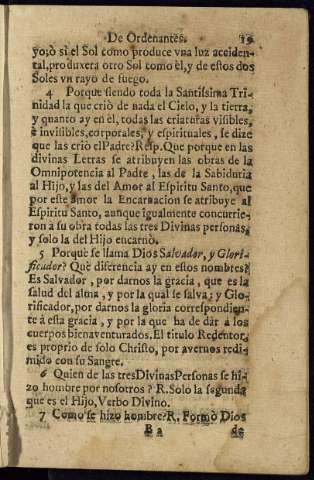 De Ordenantes. 19
yo; ò si el Sol como produce vna luz acciden-
tal, produxera otro Sol como èl, y de estos dos
Soles vn rayo de fuego.
4 Porque siendo toda la Santissima Tri-
nidad la que criò de nada el Cielo, y la tierra,
y quanto ay en èl, todas las criaturas visibles,
è invisibles, corporales, y espirituales, se dize
que las criò el Padre? Resp. Que porque en las
divinas Letras se atribuyen las obras de la
Omnipotencia al Padre, las de la Sabiduria
al Hijo, y las del Amor al Espiritu Santo, que
por este amor la Encarnacion se atribuye al
Espiritu Santo, aunque igualmente concurrie-
ron à su obra todas las tres Divinas personas,
y solo la del Hijo encarnò.
5 Porquè se llama Dios Salvador, y Glori-
ficador? Què diferencia ay en estos nombres?
Es Salvador, por darnos la gracia, que es la
salud del alma, y por la qual se salva; y Glo-
rificador, por darnos la gloria correspondien-
te à esta gracia, y por la que ha de dàr à los
cuerpos bienaventurados. El titulo Redentor,
es proprio de solo Christo, por avernos redi-
mido con su Sangre.
6 Quien de las tres Divinas Personas se hi-
zo hombre por nosotros? R. Solo la segunda
que es el Hijo, Verbo Divino.
7 Como se hizo hombre? R. Formò Dios
B 2 de